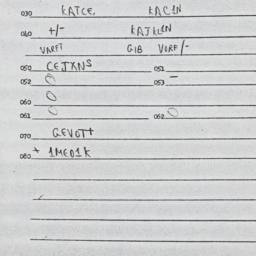 030 KATCE, KAC1N
040 +/-
VARFT GIB VORF/-
050 CEJXNS 051
052 O 053 -
060 O
061 O 062 O
070 GEVOTT
080 + 1MED1K